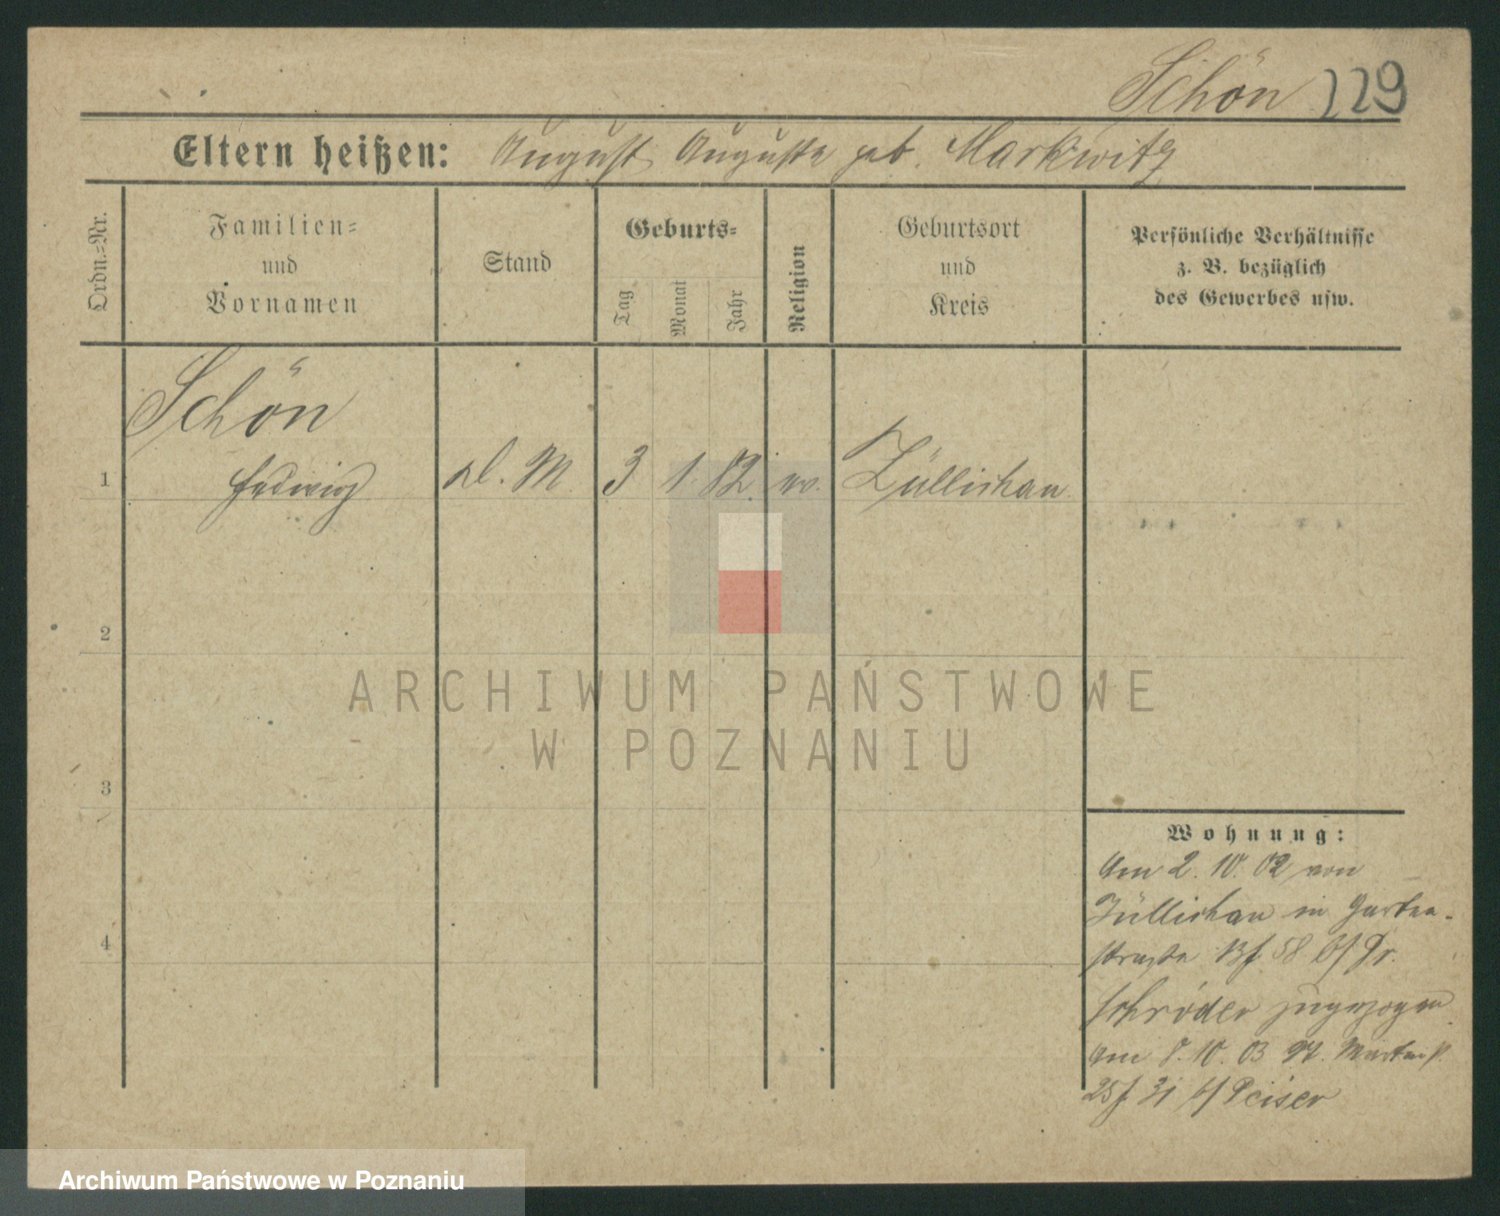 Schön 229
Eltern heißen: August Auguste geb. Markwitz
Ordn.=Nr.
Familien=
und
Vornamen
Stand
Geburts=
Tag
Monat
Jahr
Religion
Geburtsort
und
Kreis
Persönliche Verhältnisse
z. B. bezüglich
des Gewerbes usw.
Schön
1 Hedwig M 3 1. 82. ev. Züllichau
2
ARCHIWUM PAŃSTWOWE
W POZNANIU
3
4
Wohnung:
Am 2. 10. 02 von
Züllichau in Garten-
straße 58 Dr.
Schröder zugezogen
Am 8. 10. 03
31 Peiser
Archiwum Państwowe w Poznaniu